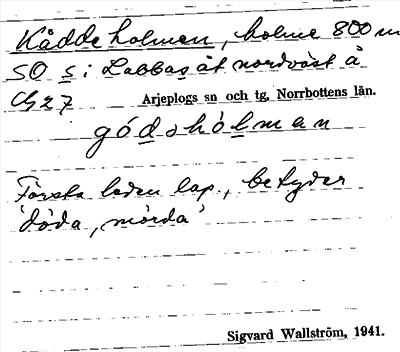 Kådde holmen, holme 800 m
SO s; i Labbas åt nordväst å
Ch 27 Arjeplogs sn och tg, Norrbottens län.
gódəhólman
Första leden lap., betyder
'döda, mörda'
Sigvard Wallström, 1941.